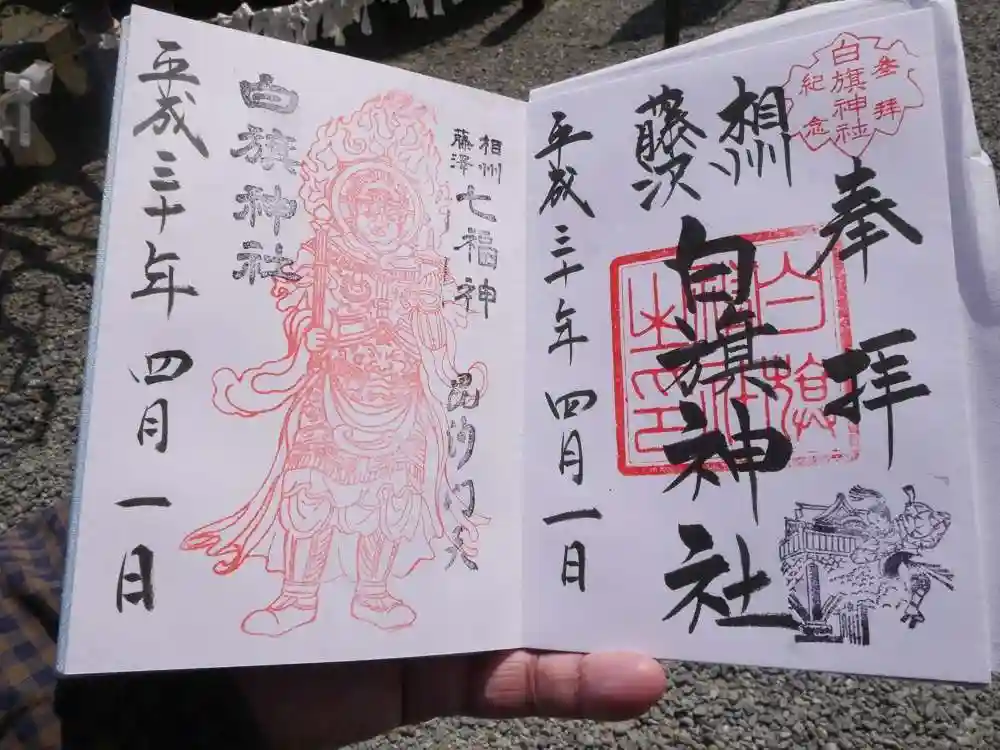 参拝
白旗神社
紀念
奉拝
相州
藤沢
白旗神社
平成三十年四月一日
相州
藤澤
七福神
毘沙門天
白旗神社
平成三十年四月一日